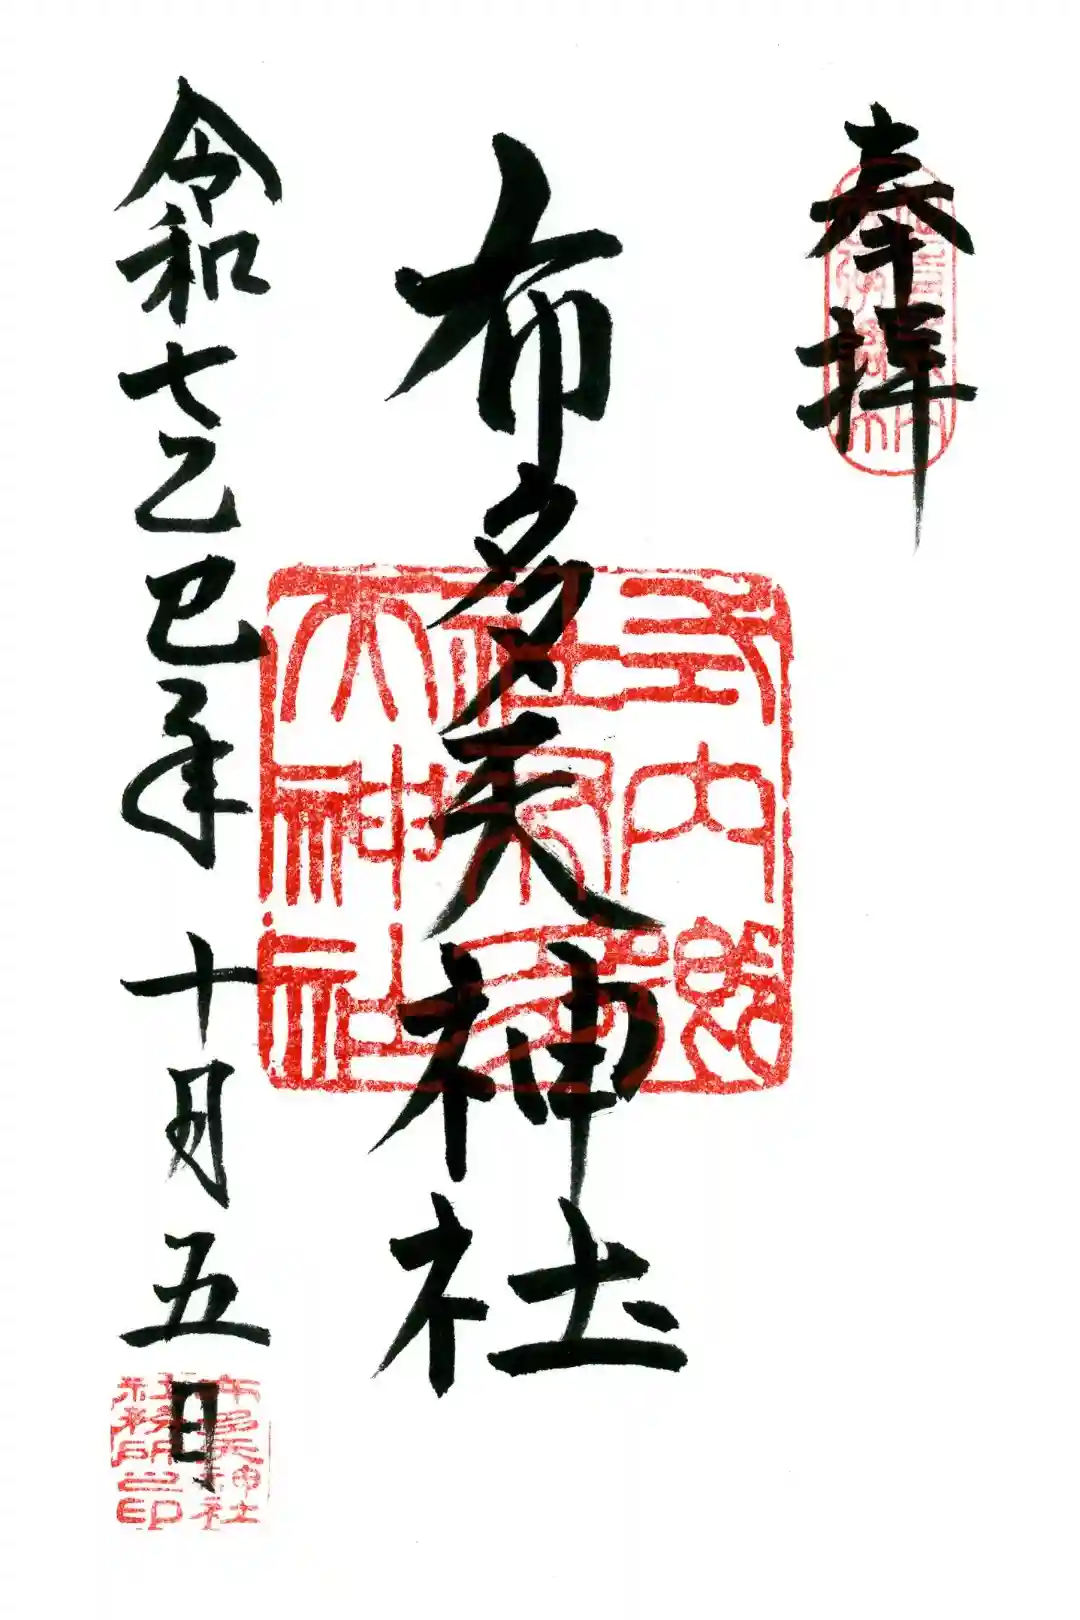 奉拝
布多天神社
令和七乙巳年 十月五日
式内郷
社布多
天神社
布多天神社
社務所之印